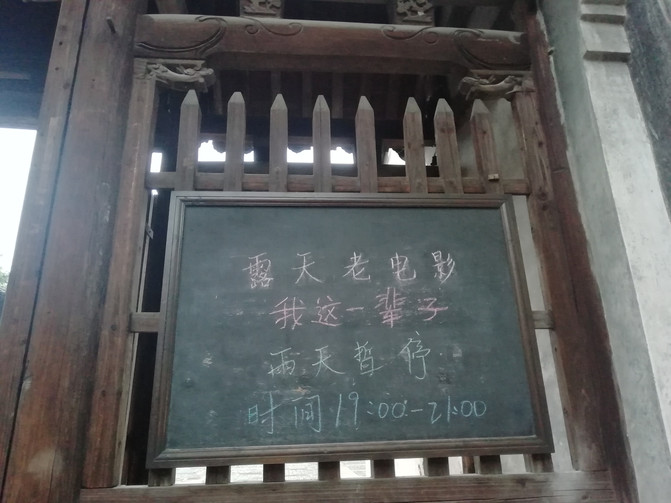 露天老电影
我这一辈子
雨天暂停
时间19:00-21:00